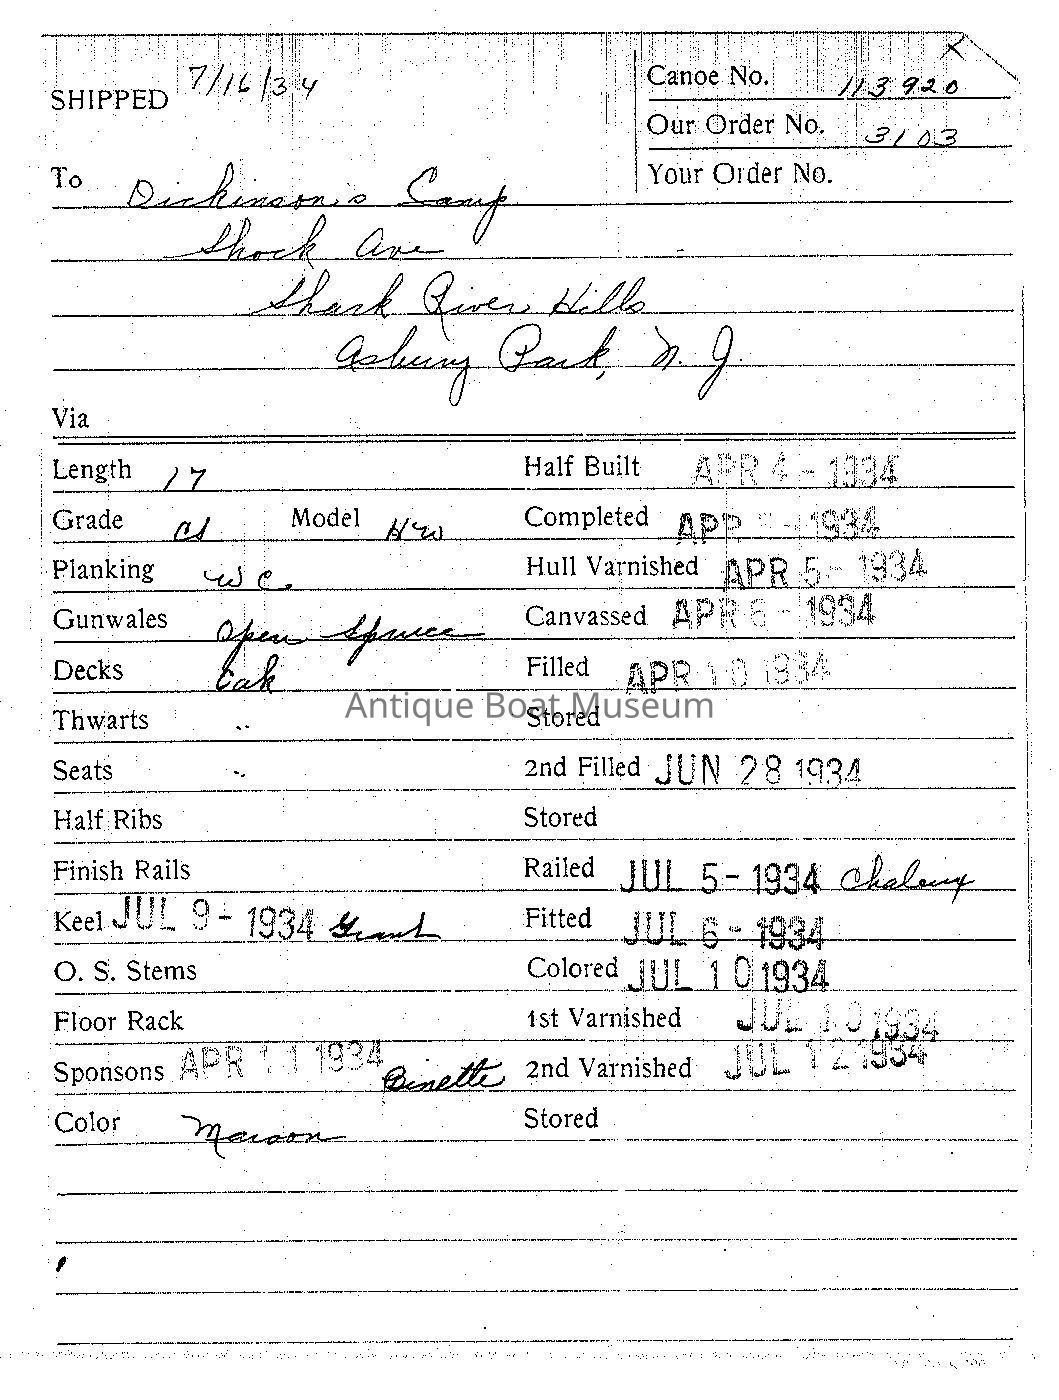 SHIPPED 7/16/34
Canoe No. 113920
Our Order No. 3103
Your Order No.
To Dickinson's Camp
Shock Ave
Shark River Hills
Asbury Park, N. J.
Via
Length 17 Half Built APR 4 - 1934
Grade CS Model HW Completed APR - 1934
Planking W C. Hull Varnished APR 5 - 1934
Gunwales Open Spruce Canvassed APR 6 - 1934
Decks Oak Filled APR 10 1934
Antique Boat Museum
Thwarts " Stored
Seats " 2nd Filled JUN 28 1934
Half Ribs Stored
Finish Rails Railed JUL 5 - 1934
Keel JUL 9 - 1934 Grant Fitted JUL 6 - 1934
O. S. Stems Colored JUL 10 1934
Floor Rack 1st Varnished JUL 10 1934
Sponsons APR 11 1934 Binette 2nd Varnished JUL 12 1934
Color Maroon Stored